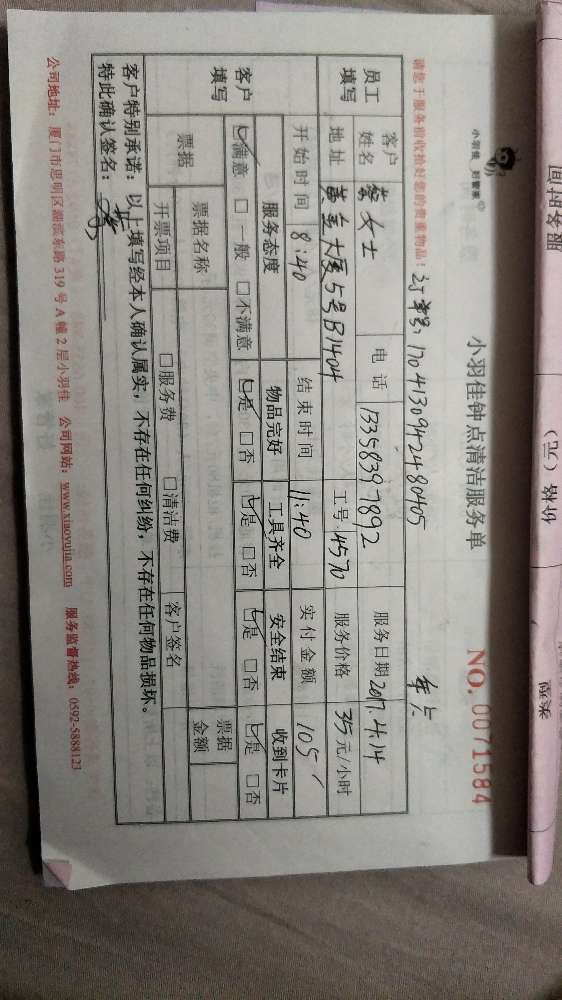 小羽佳 好管家
小羽佳钟点清洁服务单
NO. 0071584
请您于服务前收拾好您的贵重物品!
订单号:1704130942480405
员工填写
客户姓名
女士
电话
13358397892
服务日期
2017.4.14
地址
大厦5号B1404
工号
4570
服务价格
35元/小时
客户填写
开始时间
8:40
结束时间
11:40
实付金额
105
服务态度
物品完好
工具齐全
安全结束
收到卡片
☑满意 □一般 □不满意
☑是 □否
☑是 □否
☑是 □否
☑是 □否
票据
票据名称
客户签名
票据金额
开票项目
□服务费 □清洁费
客户特别承诺:以上填写经本人确认属实,不存在任何纠纷,不存在任何物品损坏。
特此确认签名:
公司地址:厦门市思明区湖滨东路319号A幢2层小羽佳 公司网站:www.xiaoyujia.com 服务监督热线:0592-5888123
服务时间
价格(元)